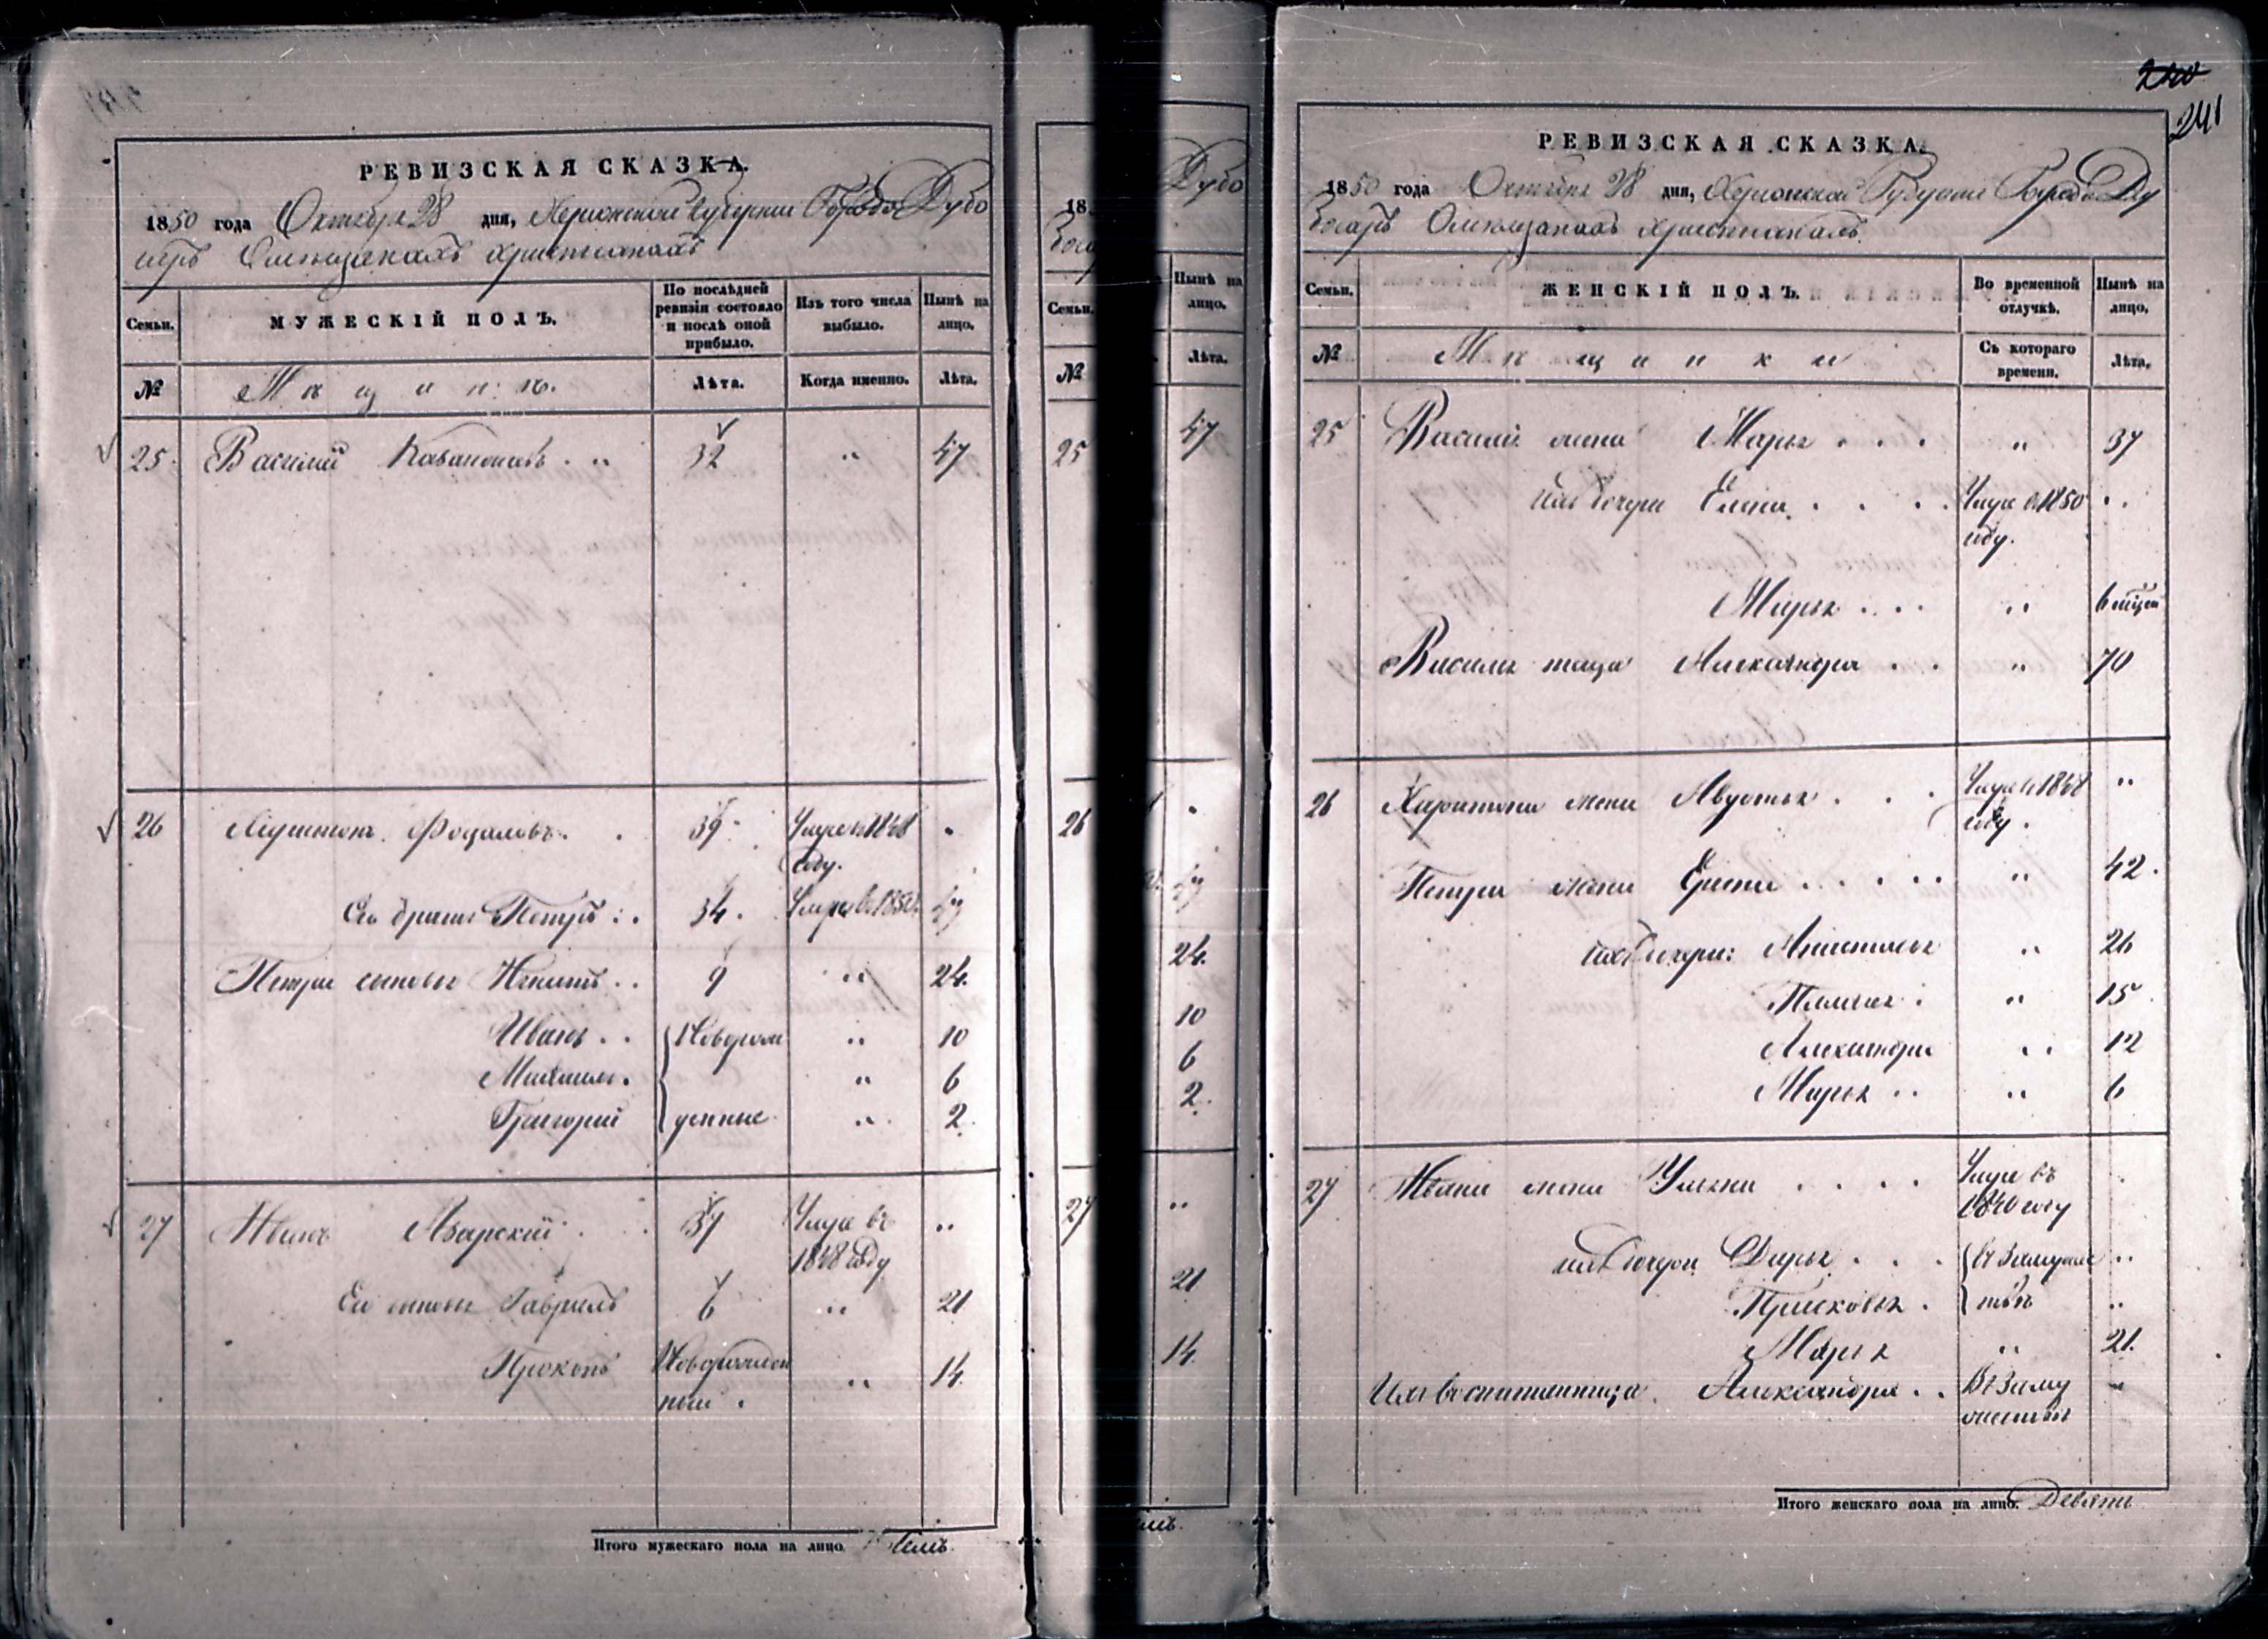 РЕВИЗСКАЯ СКАЗКА.
1850 года Октября 28 дня, Херсонской Губернии Города Дубо
саръ О мѣщанахъ христіанахъ
Семьи. МУЖЕСКІЙ ПОЛЪ. По послѣдней ревизіи состояло и послѣ оной прибыло. Изъ того числа выбыло. Нынѣ на лицо.
№ Мѣщане. Лѣта. Когда именно. Лѣта.
25 Василий 32 " 47
26 39 Умре в 1848 "
году.
Его братъ Петръ 34. Умре в 1850
Петра сыновья Никита 9 " 24.
Иванъ Новорож " 10
Михаилъ " 6
Григорий денные " 2.
27 Иванъ Азарский 37 Умре въ "
1848 году
Его сыновья Гаврилъ 6 " 21
Прокопъ Новорожден " 14.
ный
Итого мужескаго пола на лицо
18
Семьи.
№
25
26
27
Дубо
Нынѣ на лицо.
Лѣта.
47
24.
10
6
2.
21
14.
240
241
РЕВИЗСКАЯ СКАЗКА.
1850 года Октября 28 дня, Херсонской Губернии Города Ду
босаръ О мѣщанахъ христіанахъ
Семьи. ЖЕНСКІЙ ПОЛЪ. Во временной отлучкѣ. Нынѣ на лицо.
№ Мѣщанки Съ котораго времени. Лѣта.
25 Василия жена Марья " 37
ихъ дочери Елена Умре в 1850 "
году.
Марья " 6 мѣсец
Василия теща Александра " 70
26 Харитона жена Авдотья Умре в 1848 "
году.
Петра жена Елена " 42.
ихъ дочери: Анастасья " 26
Пелагея " 15
Александра " 12
Марья " 6
27 Ивана жена Умре въ
1840 году
ихъ дочери Дарья в Замуже "
Прасковья ствѣ "
Марья " 21.
Ихъ воспитанница Александра В Заму "
жествѣ
Итого женскаго пола на лицо. Девять